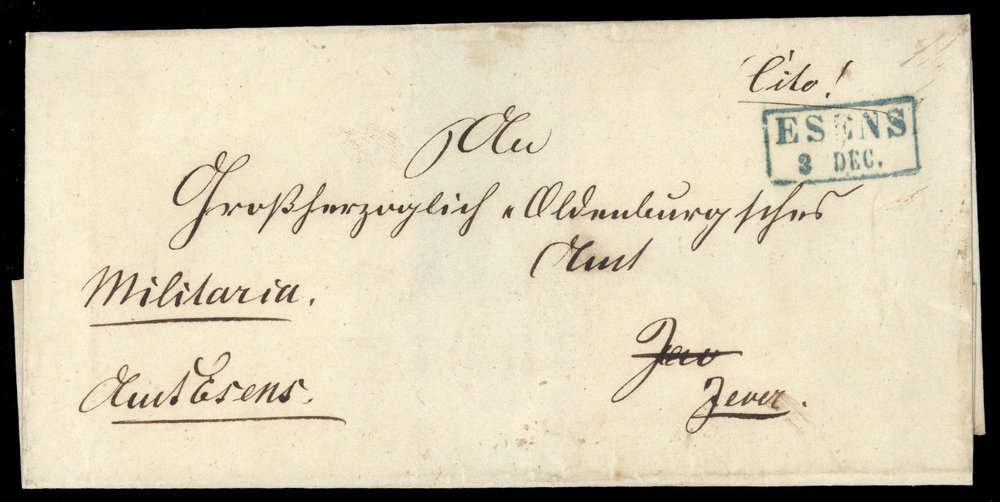 Cito!
ESENS
3 DEC.
An
Großherzoglich-Oldenburgsches
Amt
Militaria.
Jev
Amt Esens.
Jever.